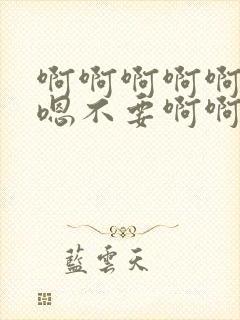 啊啊啊啊啊
嗯不要啊啊
藍雲天